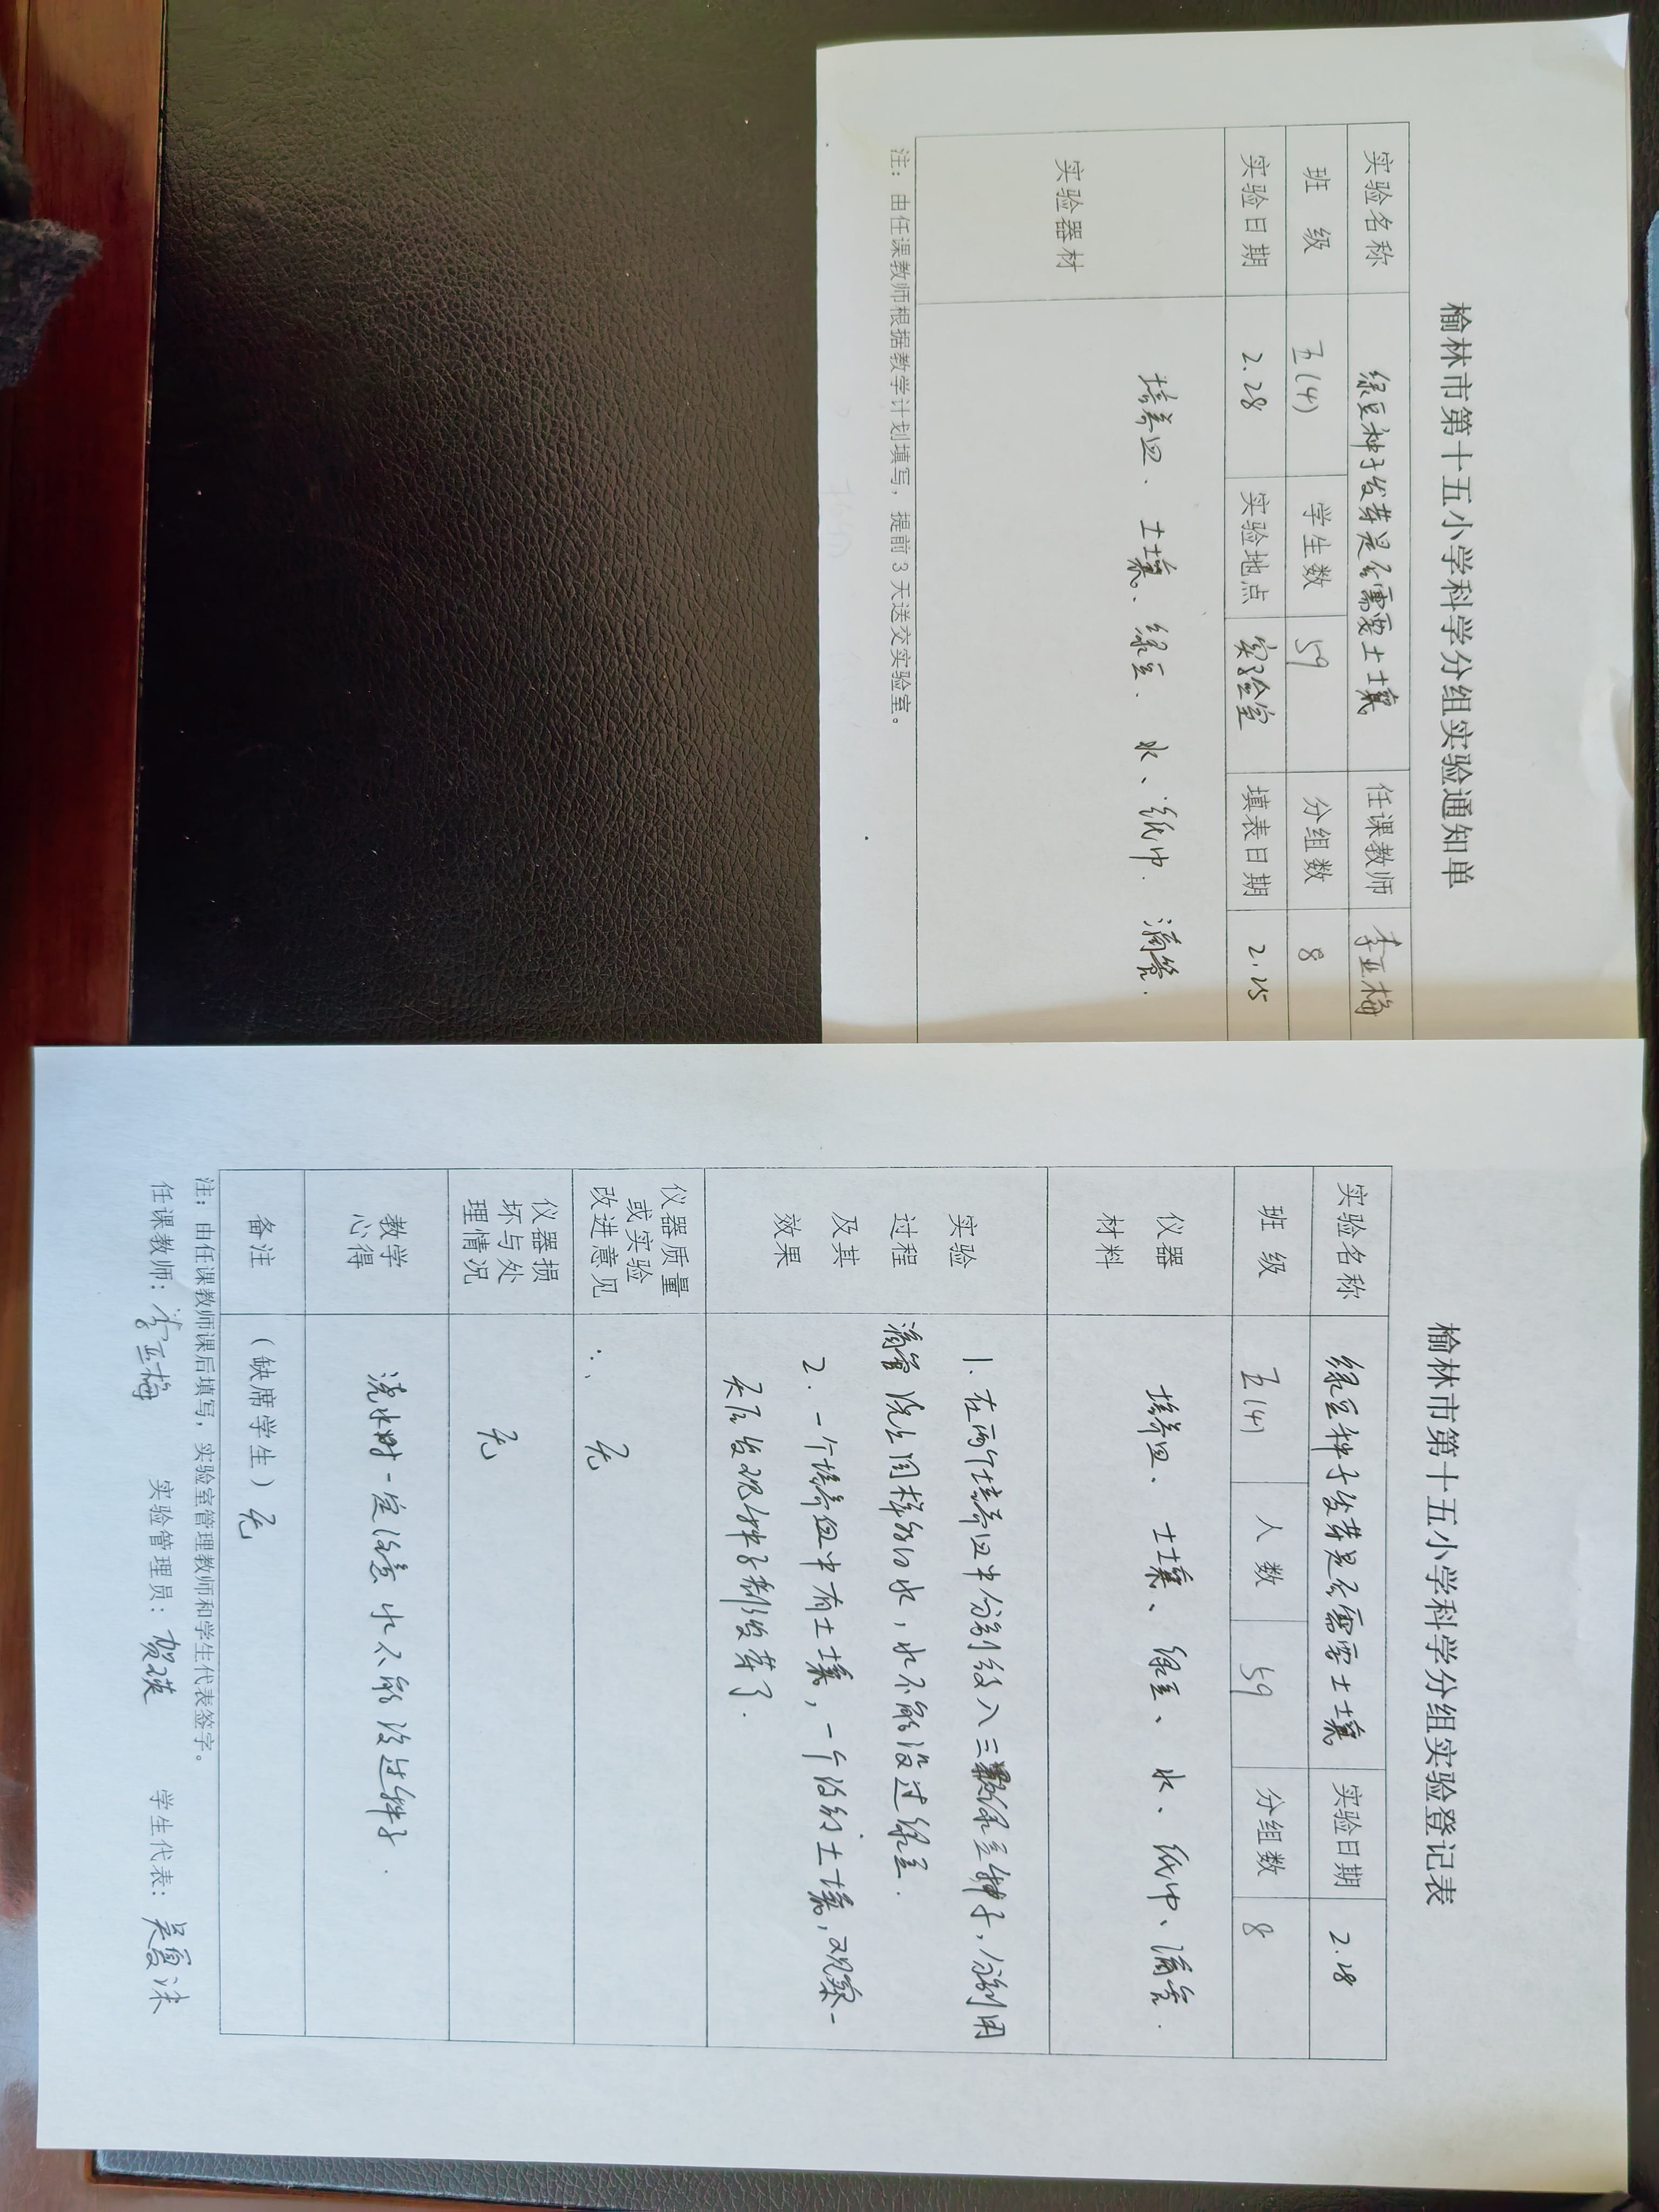 榆林市第十五小学科学分组实验通知单
实验名称 绿豆种子发芽是否需要土壤 任课教师 李亚梅
班 级 五(4) 学生数 59 分组数 8
实验日期 2.28 实验地点 实验室 填表日期 2.25
实验器材 培养皿、土壤、绿豆、水、纸巾、滴管.
注：由任课教师根据教学计划填写，提前3天送交实验室。
榆林市第十五小学科学分组实验登记表
实验名称 绿豆种子发芽是否需要土壤 实验日期 2.28
班 级 五(4) 人 数 59 分组数 8
仪器
材料
培养皿、土壤、绿豆、水、纸巾、滴管.
实验
过程
及其
效果
1. 在两个培养皿中分别放入三颗绿豆种子，分别用
滴管浇上同样多的水，水不能没过绿豆.
2. 一个培养皿中有土壤，一个没有土壤，观察一
天后发现种子都发芽了.
仪器质量
或实验
改进意见
无
仪器损
坏与处
理情况
无
教学
心得
浇水时一定注意水不能没过种子.
备注 （缺席学生）无
注：由任课教师课后填写，实验室管理教师和学生代表签字。
任课教师：李亚梅 实验管理员：贺瑛 学生代表：吴夏沫